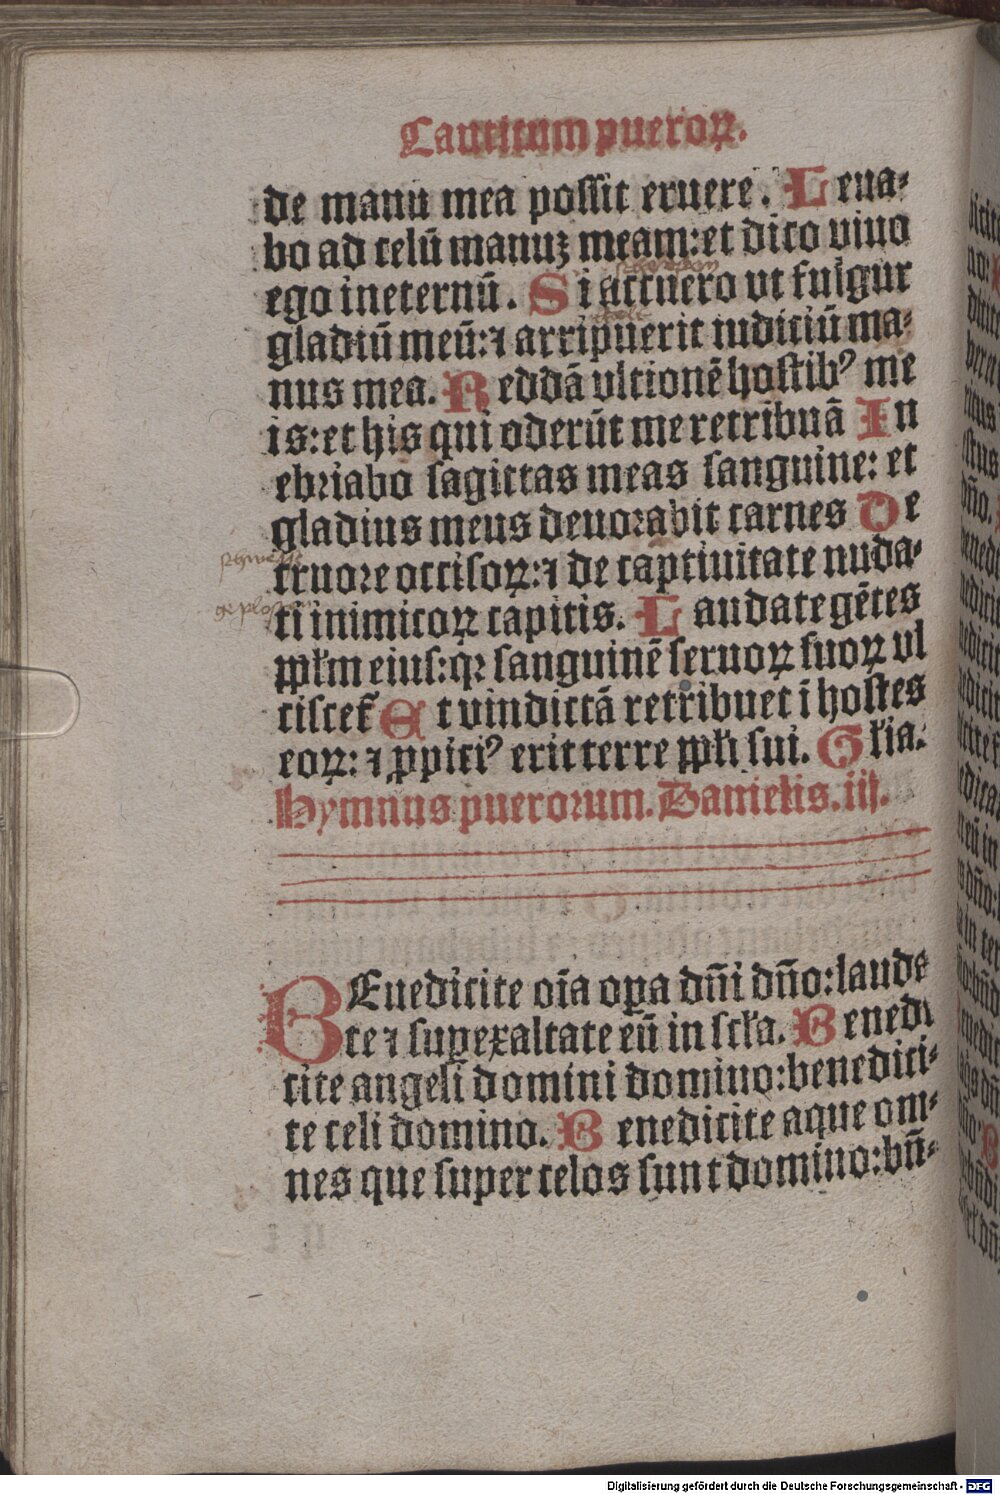 Canticum pueroꝝ.
de manu mea possit eruere. Leua-
bo ad celū manuꝫ meam: et dico viuo
ego in eternū. Si accuero vt fulgur
gladiū meū: ⁊ arripuerit iudiciū ma-
nus mea. Reddā vltionē hostibꝰ me
is: et his qui oderūt me retribuā In
ebriabo sagittas meas sanguine: et
gladius meus deuorabit carnes De
cruore occisoꝝ: ⁊ de captiuitate nuda-
ti inimicoꝝ capitis. Laudate gētes
ppl̄m eius: qꝛ sanguinē seruoꝝ suoꝝ vl
ciscet᷑ Et vindictā retribuet ī hostes
eoꝝ: ⁊ ꝓpiciꝰ erit terre ppl̄i sui. Gl̄ia.
Hymnus puerorum. Danielis. iij.
BEnedicite oīa oꝑa dn̄i dn̄o: lauda
te ⁊ suꝑexaltate eū in scl̄a. Benedi
cite angeli domini domino: benedici-
te celi domino. Benedicite aque om-
nes que super celos sunt domino: bn̄-
Digitalisierung gefördert durch die Deutsche Forschungsgemeinschaft - DFG